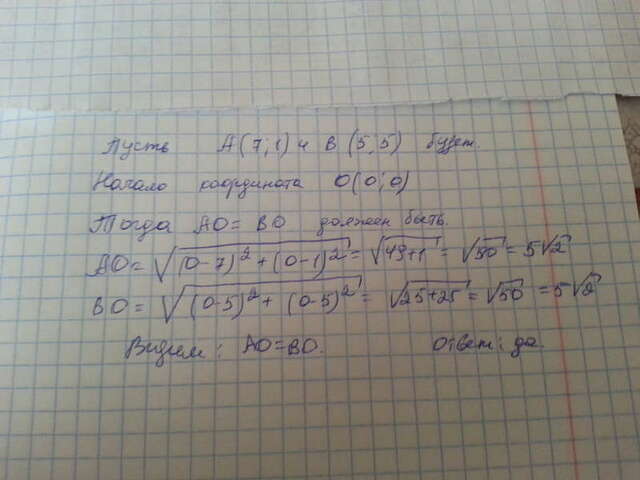 Пусть A(7;1) и B(5;5) будет.
Начало координата O(0;0)
Тогда AO=BO должен быть.
AO=√(0-7)²+(0-1)²=√49+1=√50=5√2
BO=√(0-5)²+(0-5)²=√25+25=√50=5√2
Видим: AO=BO. Ответ: да.